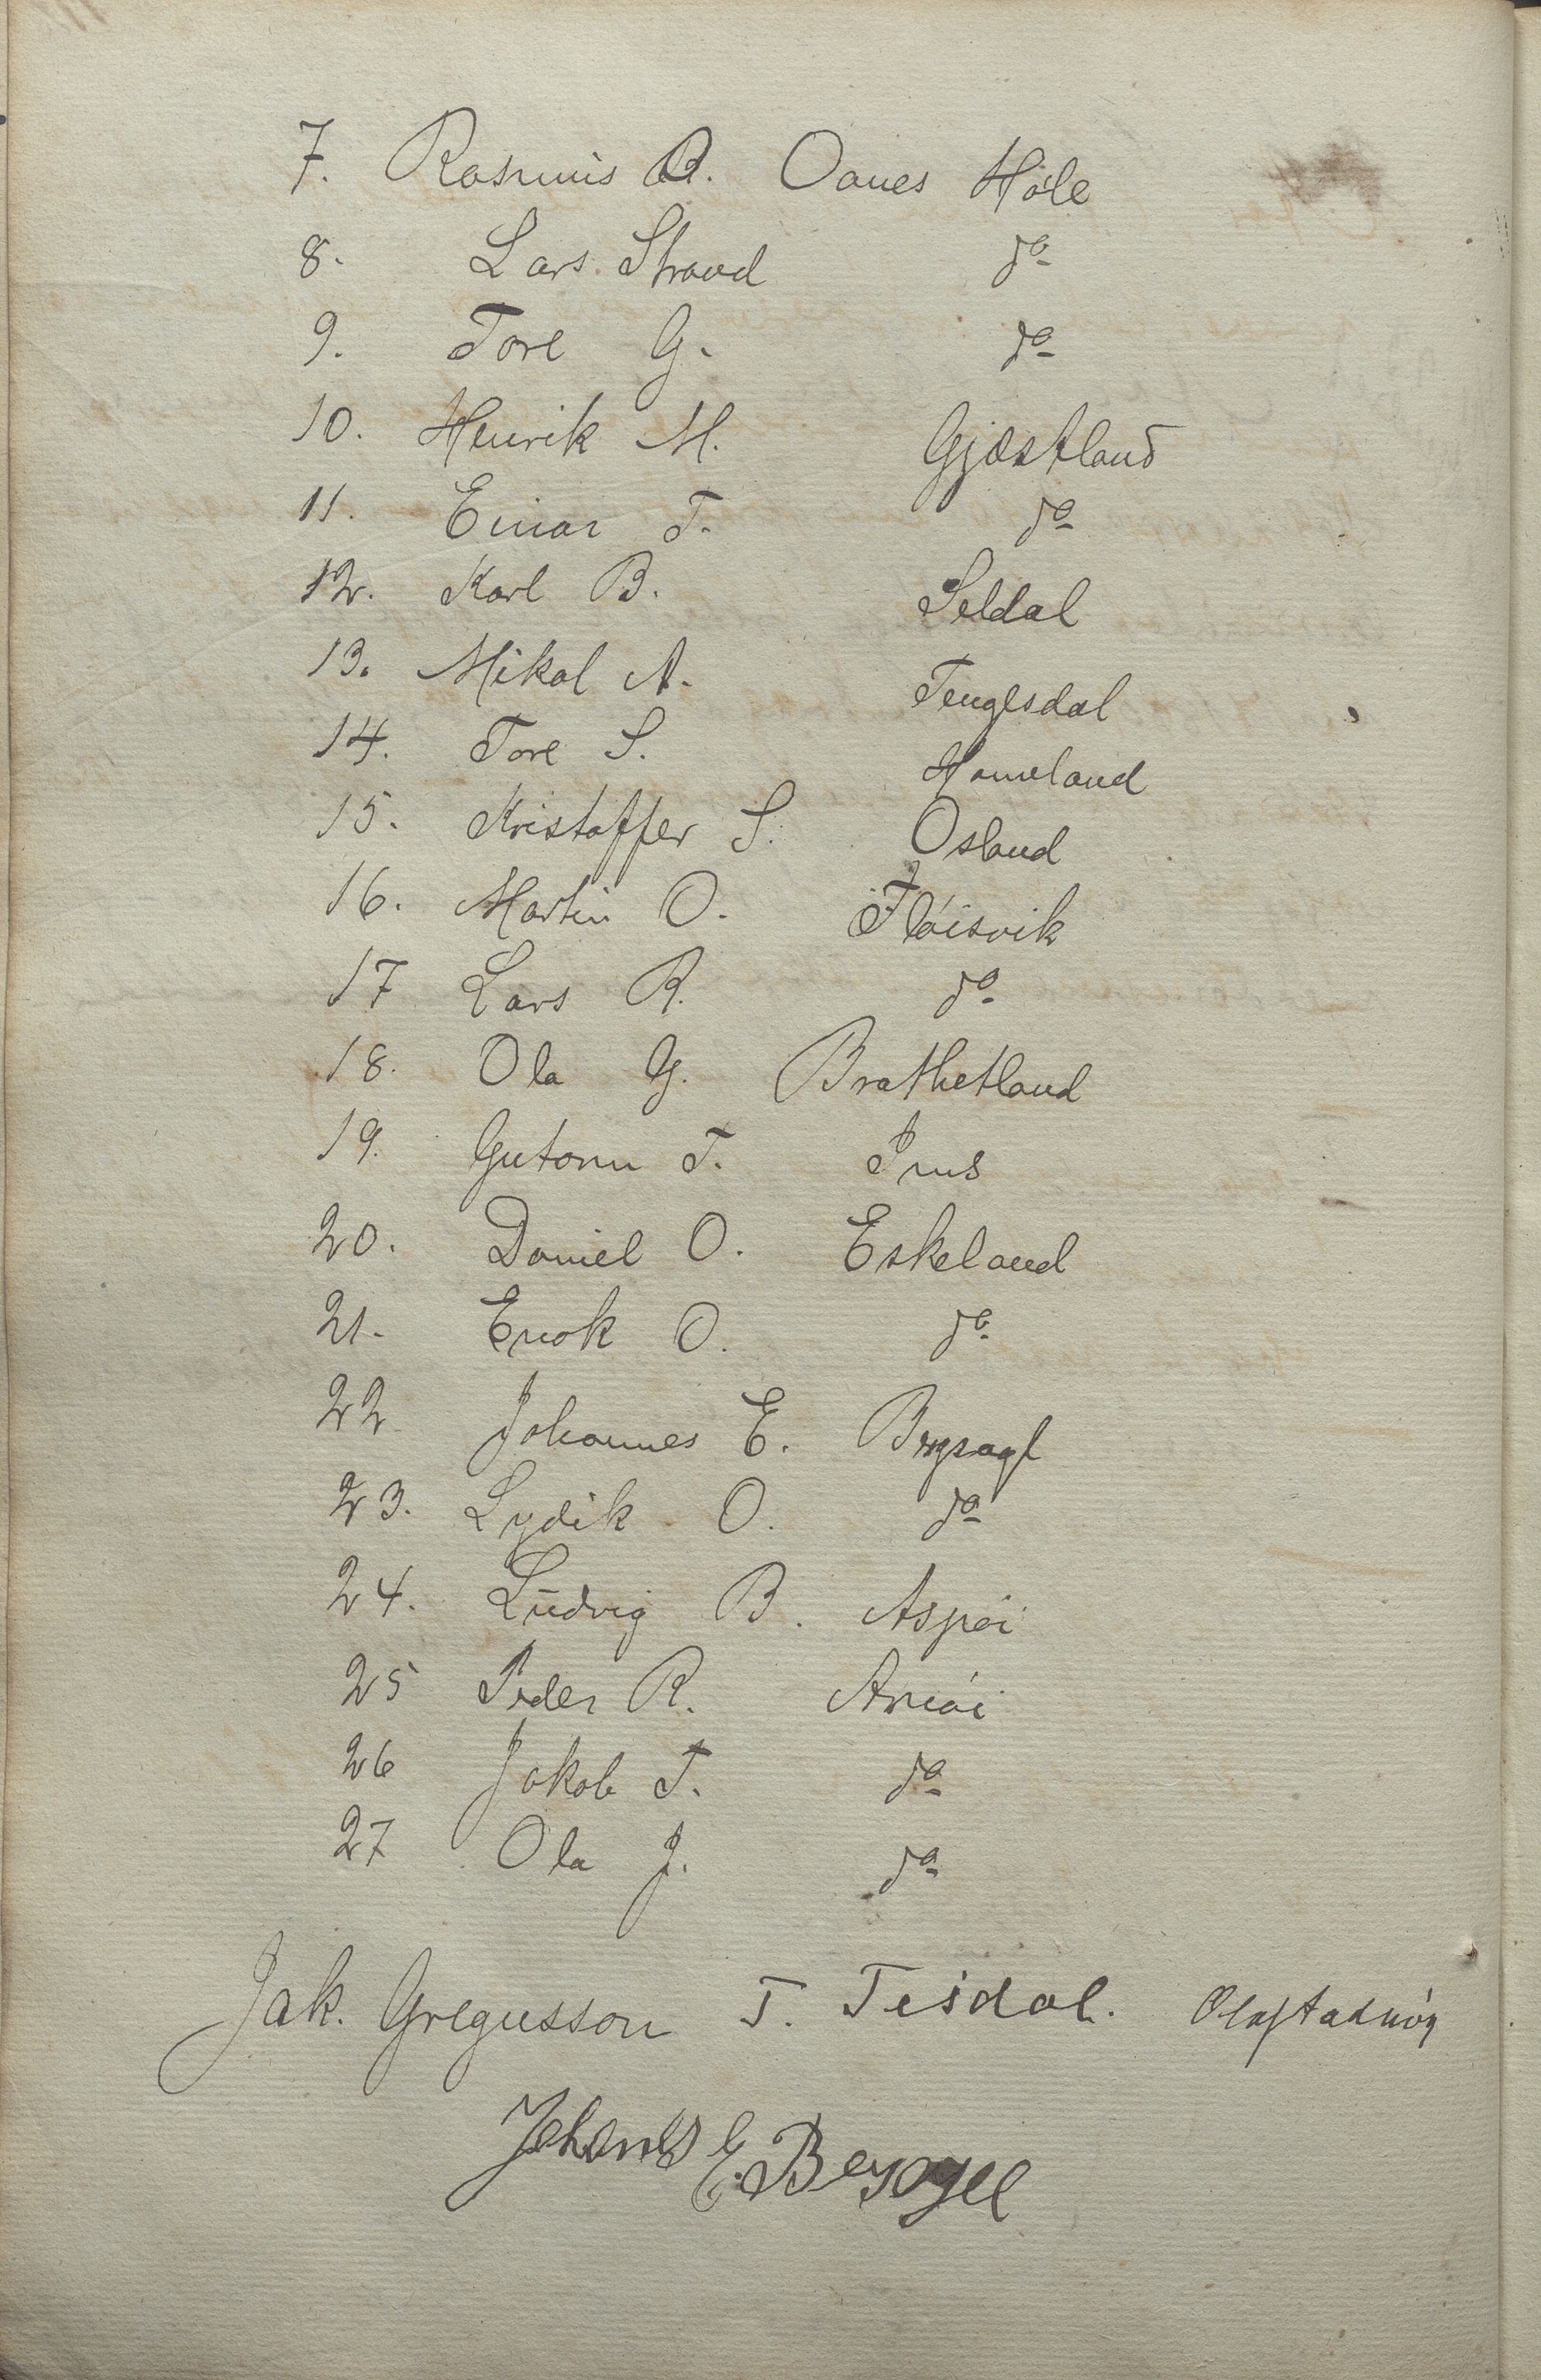 7. Rasmus R. Oanes Høle
8. Lars Strand do
9. Tore G. do
10. Henrik M. Gjæstland
11. Einar T. do
12. Karl B. Seldal
13. Mikal A. Tenglsdal
14. Tore S. Hameland
15. Kristoffer S. Osland
16. Martin O. Fløisvik
17 Lars R. do
18. Ola G. Brathetland
19. Gutorm T. Ims
20. Daniel O. Eskeland
21. Enok O. do
22 Johannes E. Bersagl
23. Lydik O. do
24. Ludvig B. Aspøi
25 Peder R. Adnøi
26 Jakob T. do
27 Ola J. do
Jak. Gregusson T. Teisdal. Olaf Adnøy
Johannes E. Bersagel